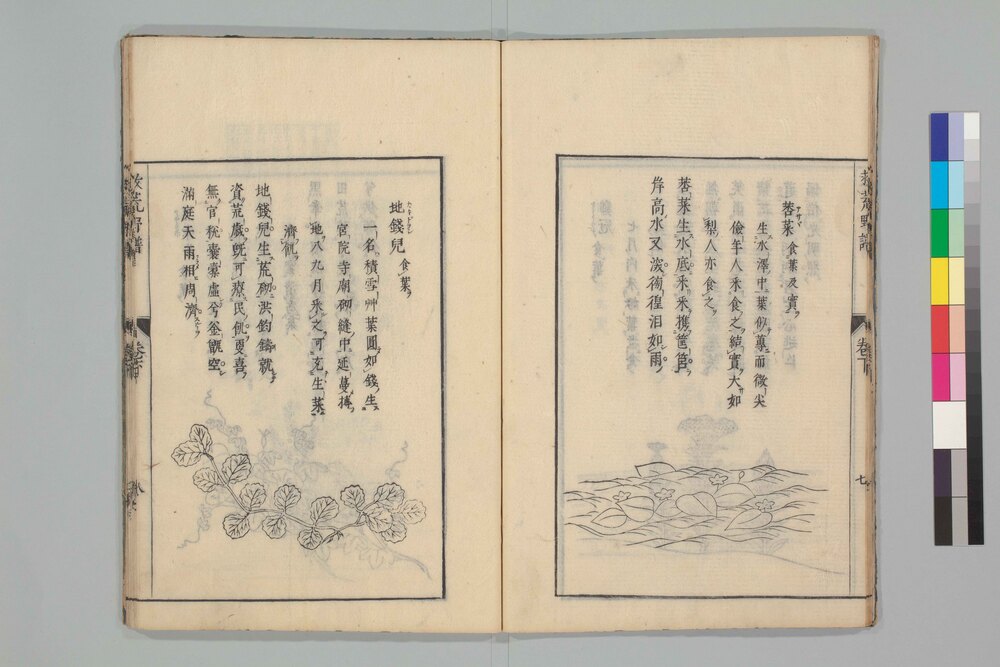 救荒野譜
卷下
七
荅菜 食葉及實
生水澤中葉似蓴而微尖
儉年人采食之結實大如
梨人亦食之
荅菜生水底采采攜筐筥
岸高水又深徬徨泪如雨
地錢兒 食葉
一名積雪艸葉圓如錢生
宮院寺廟砌縫中延蔓摶
地八九月采之可充生菜
濟飢
地錢兒生荒砌洪鈞鑄就
資荒歲既可療民飢更喜
無官稅囊橐虛兮釜甑空
滿庭天雨相周濟
救荒野譜
卷下
八